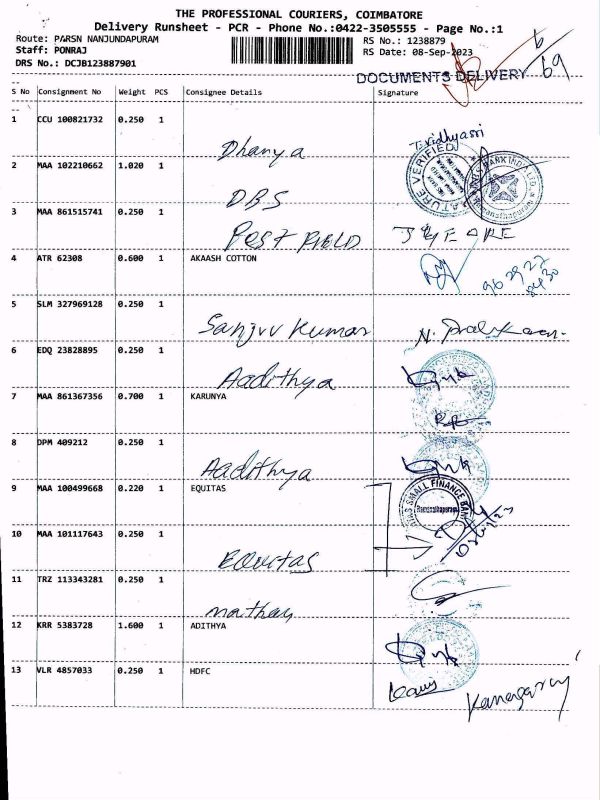 THE PROFESSIONAL COURIERS, COIMBATORE
Delivery Runsheet - PCR - Phone No.:0422-3505555 - Page No.:1
Route: PARSN NANJUNDAPURAM
RS No.: 1238879
Staff: PONRAJ
RS Date: 08-Sep-2023
DRS No.: DCJB123887901
6/69
DOCUMENTS DELIVERY
S No Consignment No Weight PCS Consignee Details Signature
1 CCU 100821732 0.250 1 Dhanya
2 MAA 102210662 1.020 1 DBS
3 MAA 861515741 0.250 1 Post FIELD
4 ATR 62308 0.600 1 AKAASH COTTON
5 SLM 327969128 0.250 1 Sanjvv Kumar
6 EDQ 23828895 0.250 1 Aadithya
7 MAA 861367356 0.700 1 KARUNYA
8 DPM 409212 0.250 1 Aadithya
9 MAA 100499668 0.220 1 EQUITAS
SMALL FINANCE BANK
10 MAA 101117643 0.250 1 Equitas
11 TRZ 113343281 0.250 1 mathay
12 KRR 5383728 1.600 1 ADITHYA
13 VLR 4857033 0.250 1 HDFC Kanagaraj